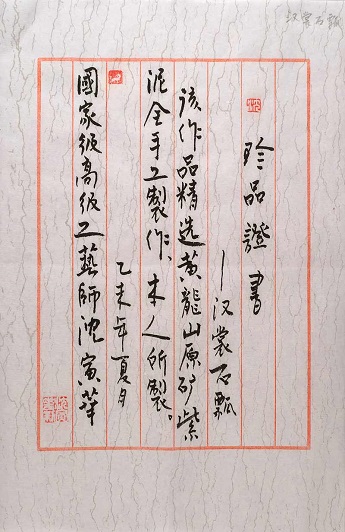 汉裳石瓢
珍品證書
—汉裳石瓢
该作品精选黄龍山原矿紫
泥全手工製作、本人所製。
乙未年夏月
國家级高级工藝師沈寅華